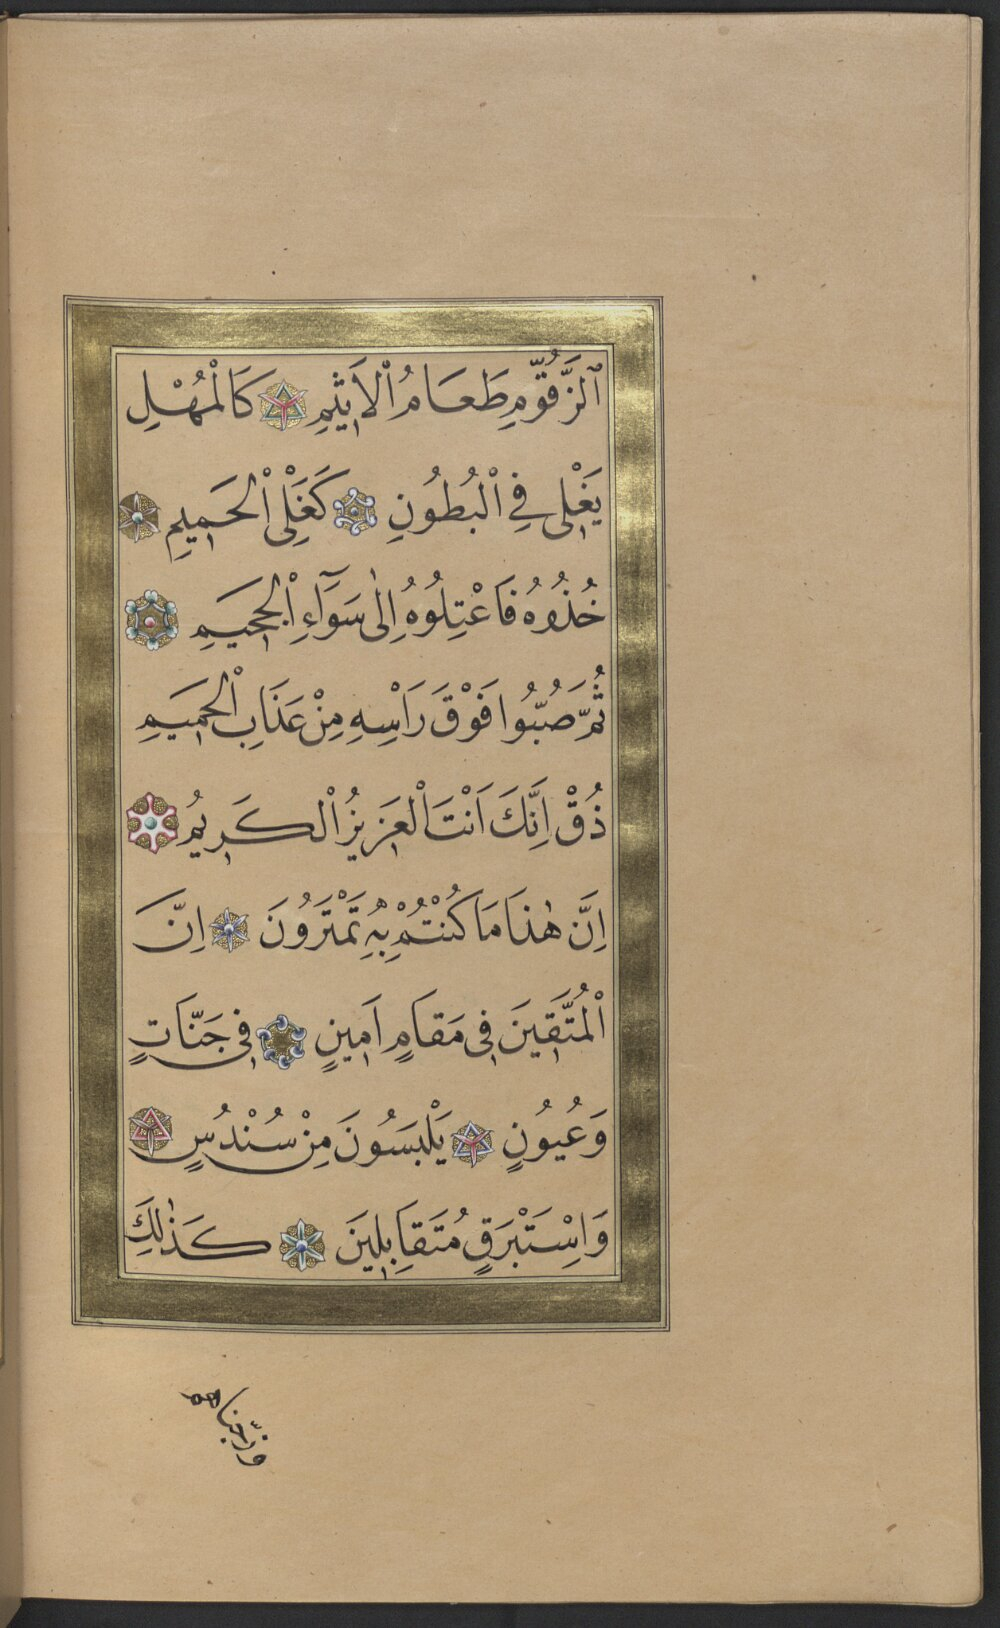 اَلزَّقُّومِ طَعَامُ الْاَثِيمِ كَالْمُهْلِ
يَغْلِى فِى الْبُطُونِ كَغَلْىِ الْحَمِيمِ
خُذُوهُ فَاعْتِلُوهُ اِلٰى سَوَٓاءِ الْجَحِيمِ
ثُمَّ صُبُّوا فَوْقَ رَاْسِهِ مِنْ عَذَابِ الْحَمِيمِ
ذُقْ اِنَّكَ اَنْتَ الْعَزِيزُ الْكَرِيمُ
اِنَّ هٰذَا مَا كُنْتُمْ بِهِ تَمْتَرُونَ اِنَّ
الْمُتَّقِينَ فِى مَقَامٍ اَمِينٍ فِى جَنَّاتٍ
وَعُيُونٍ يَلْبَسُونَ مِنْ سُنْدُسٍ
وَاِسْتَبْرَقٍ مُتَقَابِلِينَ كَذٰلِكَ
وزوّجناهم